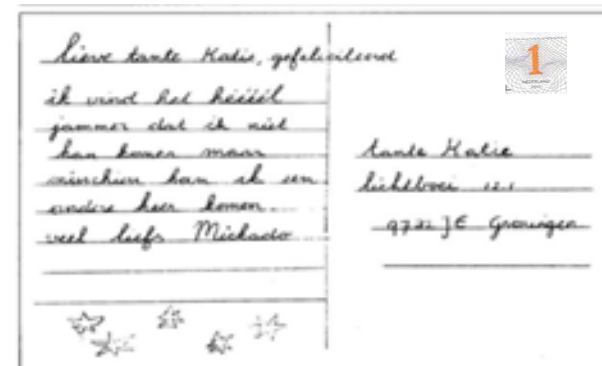 lieve tante Katie, gefeliciteerd
ik vind het héééél
jammer dat ik niet
kan komen maar
misschien kan ik een
andere keer komen
veel liefs Mickado
1
NEDERLAND
tante Katie
lichtboei 121
9732 JE Groningen